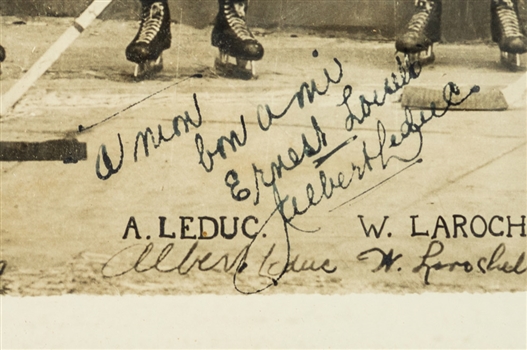 A mon
bon ami
Ernest
Albert Leduc.
A. LEDUC. W. LAROCH
Albert Leduc W. Larochel